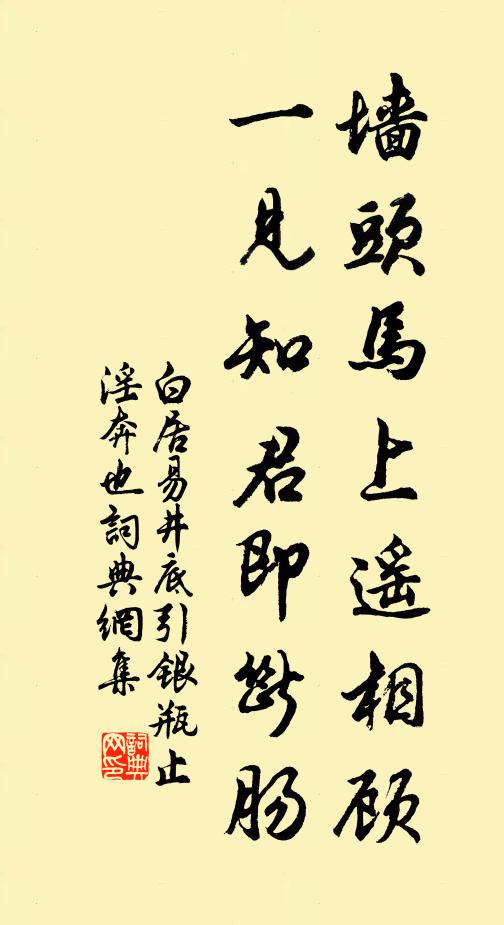 墙頭馬上遥相顾
一見知君即断肠
白居易井底引銀瓶止
淫奔也詞典網集
詞典網印